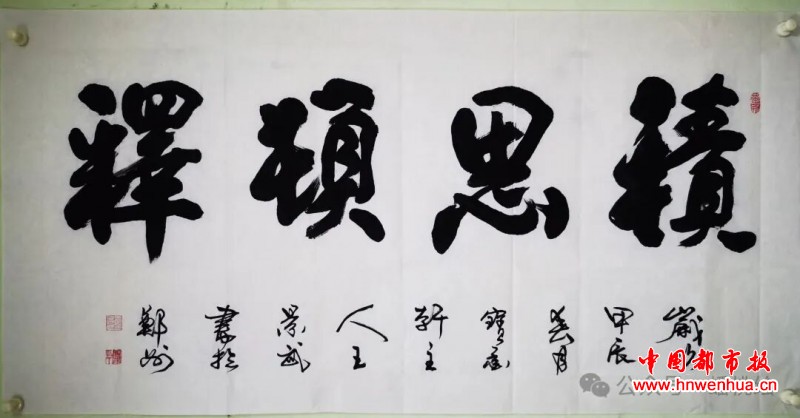 積思頓釋
歲次
甲辰
月
寶
軒主
人王
景武
書於
鄭州
中国都市报
www.hnwenhua.cn
公众号